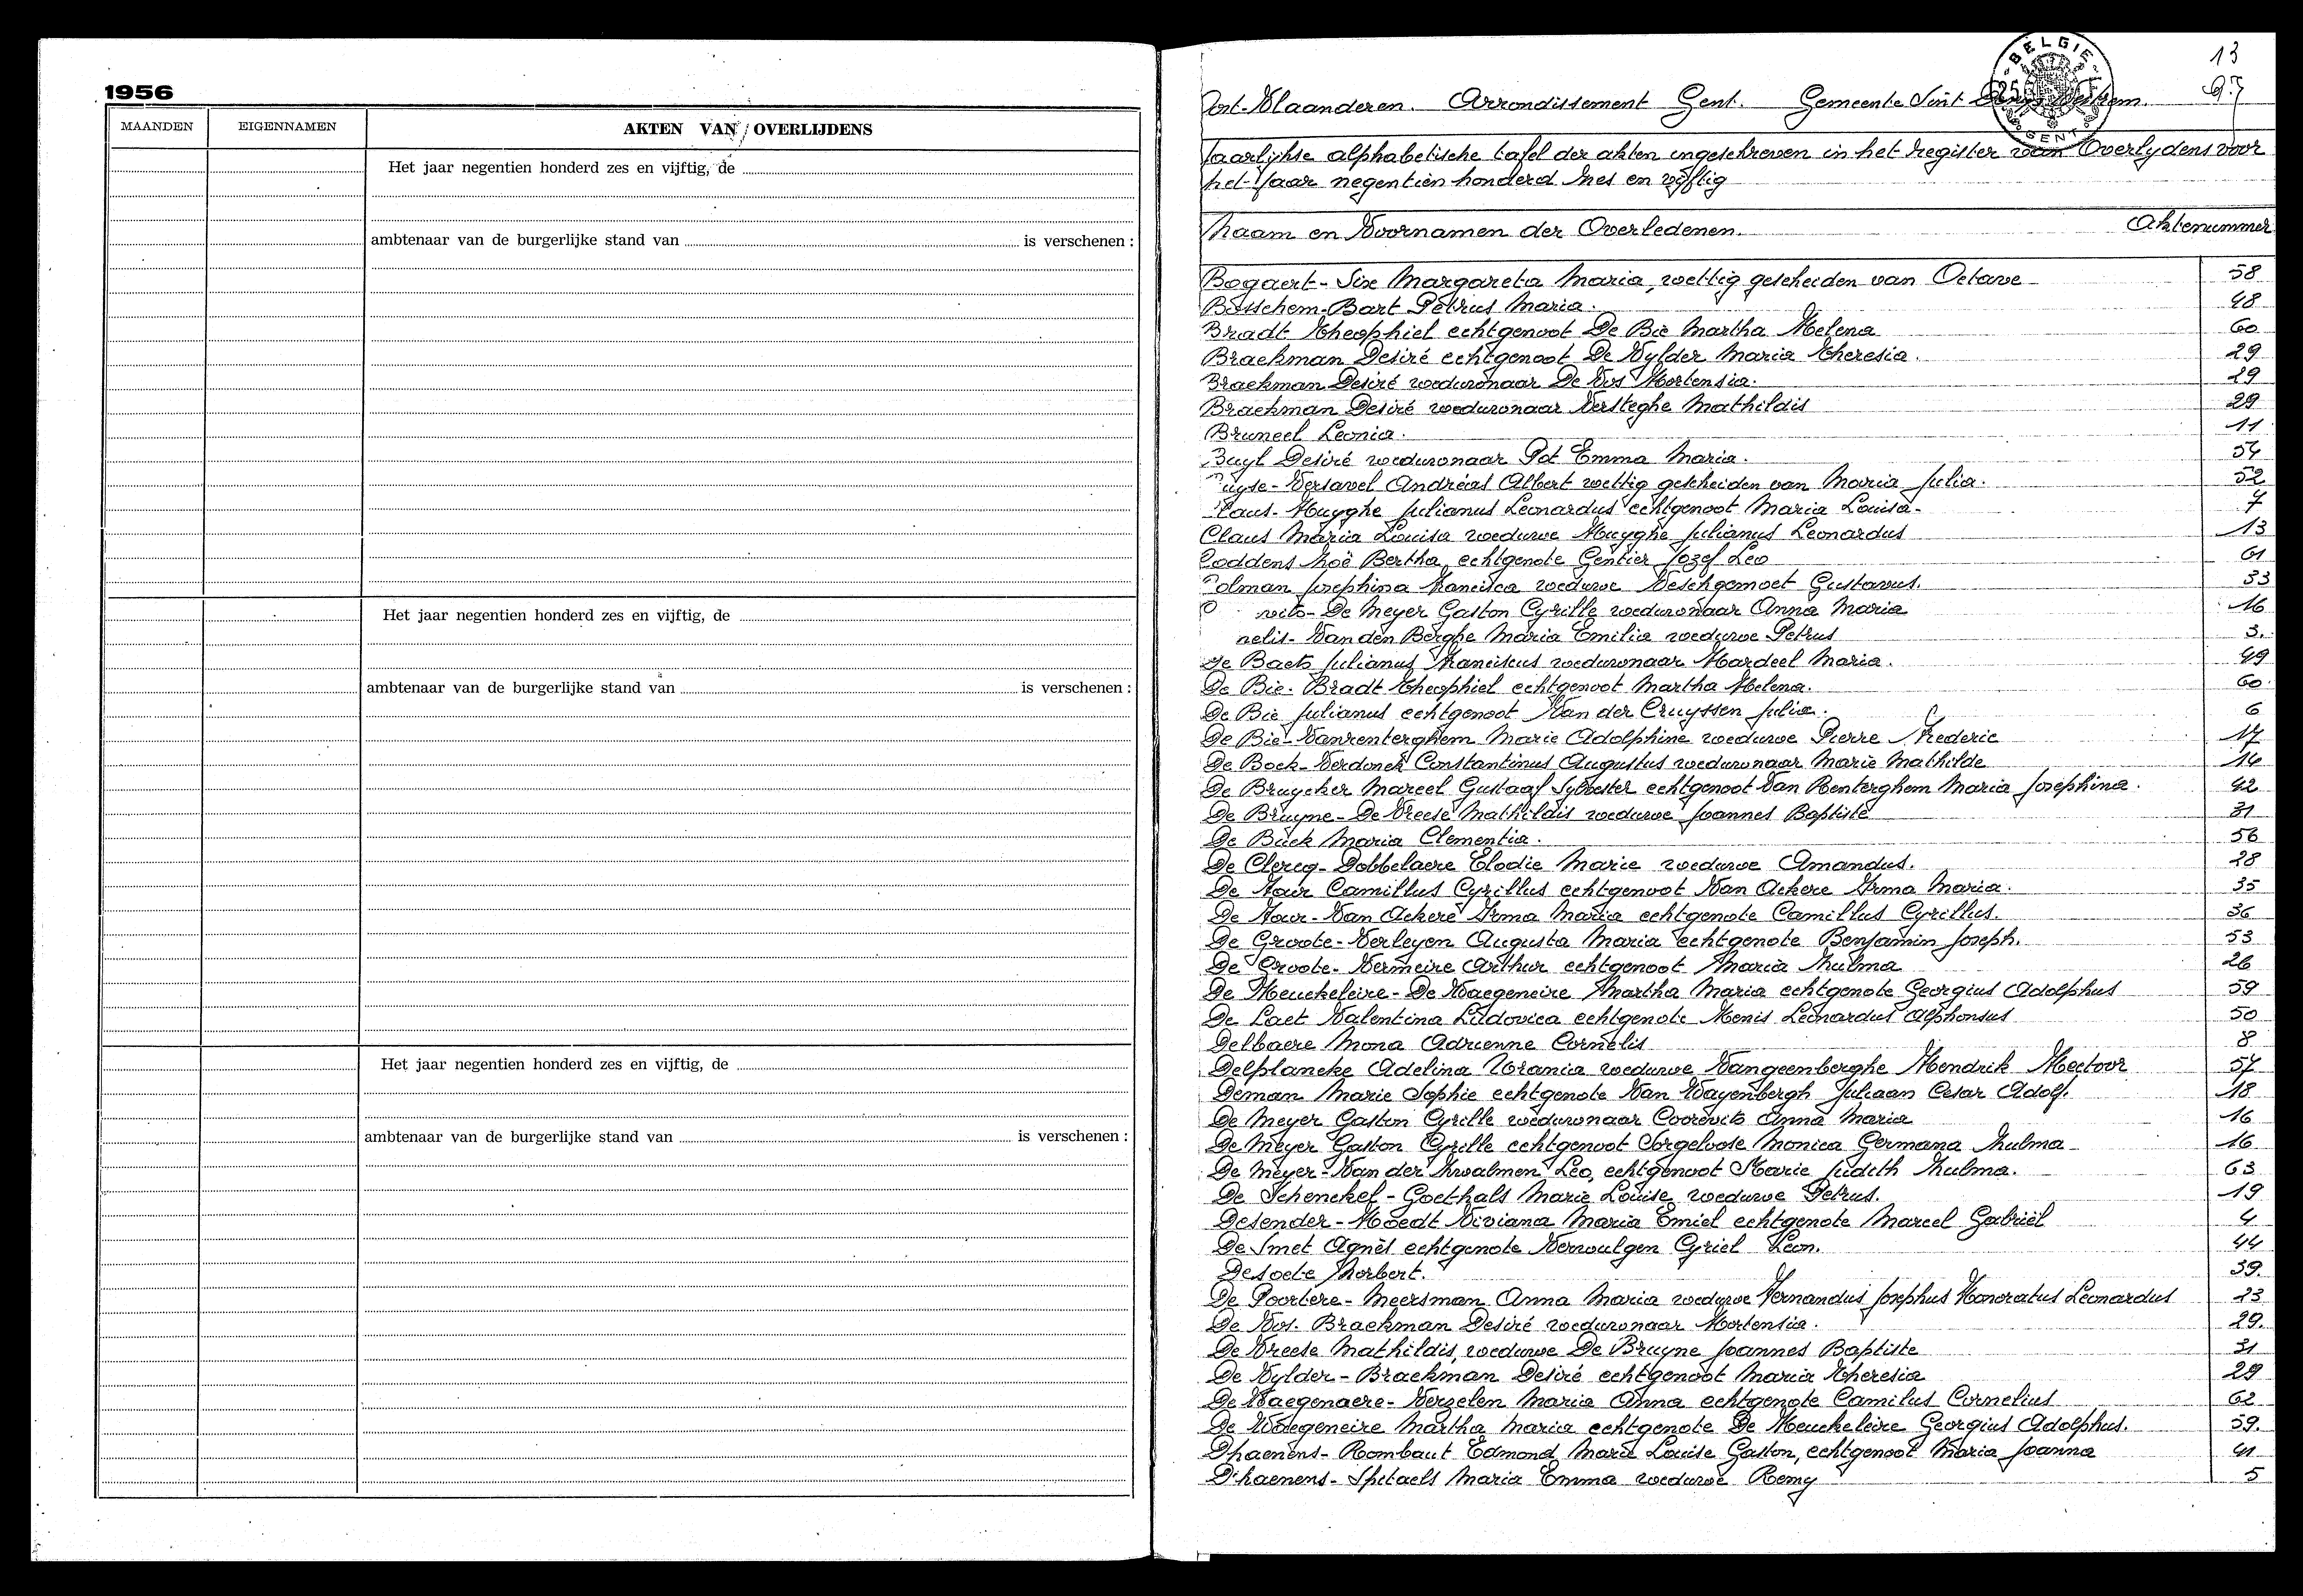 1956
MAANDEN EIGENNAMEN AKTEN VAN OVERLIJDENS
Het jaar negentien honderd zes en vijftig, de
ambtenaar van de burgerlijke stand van is verschenen :
Het jaar negentien honderd zes en vijftig, de
ambtenaar van de burgerlijke stand van is verschenen :
Het jaar negentien honderd zes en vijftig, de
ambtenaar van de burgerlijke stand van is verschenen :
13
BELGIE
GENT
Oost-Vlaanderen. Arrondissement Gent. Gemeente Sint
Jaarlijkse alphabetische tafel der akten ingeschreven in het register van Overlijdens voor
het Jaar negentien honderd zes en vijftig
Naam en Voornamen der Overledenen. Aktenummer
Bogaert - Six Margareta Maria, wettig gescheiden van Octave 58
Bosschem-Bart Petrus Maria. 48
Bradt Theophiel echtgenoot De Bie Martha Helena 60
Braekman Desiré echtgenoot De Vylder Maria Theresia. 29
Braekman Desiré weduwnaar De Vos Hortensia. 29
Braekman Desiré weduwnaar Versteghe Mathildis 29
Bruneel Leonia. 11
Buyl Desiré weduwnaar Pot Emma Maria. 54
uyse - Versavel Andréas Albert wettig gescheiden van Maria Julia. 52
Claus - Huyghe Julianus Leonardus echtgenoot Maria Louisa. 7
Claus Maria Louisa weduwe Huyghe Julianus Leonardus 13
Coddens Zoë Bertha echtgenote Gentier Jozef Leo 61
Colman Josephina Francisca weduwe Deschgemoet Gustavus. 33
vits - De Meyer Gaston Cyrille weduwnaar Anna Maria 16
nelis - Van den Berghe Maria Emilia weduwe Petrus 3.
De Baets Julianus Franciscus weduwnaar Hardeel Maria. 49
De Bie - Bradt Theophiel echtgenoot Martha Helena. 60
De Bie Julianus echtgenoot Van der Cruyssen Julia. 6
De Bie - Vanrenterghem Marie Adolphine weduwe Pierre Frederic 17
De Bock - Verdonck Constantinus Augustus weduwnaar Marie Mathilde 14
De Bruycker Marcel Gustaaf Sylvester echtgenoot Van Renterghem Maria Josephina. 42
De Bruyne - De Vreese Mathildis weduwe Joannes Baptiste 31
De Buck Maria Clementia. 56
De Clercq - Dobbelaere Elodie Marie weduwe Amandus. 28
De Faur Camillus Cyrillus echtgenoot Van Ackere Irma Maria. 35
De Faur - Van Ackere Irma Maria echtgenote Camillus Cyrillus. 36
De Groote - Verleyen Augusta Maria echtgenote Benjamin Joseph. 53
De Groote - Vermeire Arthur echtgenoot Maria Zulma 26
De Heuckeleire - De Waegeneire Martha Maria echtgenote Georgius Adolphus 59
De Laet Valentina Ludovica echtgenote Menis Leonardus Alphonsus 50
Delbaere Mona Adrienne Cornelis 8
Delplancke Adelina Urania weduwe Vangeenberghe Hendrik Hectoor 57
Deman Marie Sophie echtgenote Van Wayenbergh Juliaan Cesar Adolf. 18
De Meyer Gaston Cyrille weduwnaar Coorevits Anna Maria 16
De Meyer Gaston Cyrille echtgenoot Sorgeloose Monica Germana Zulma 16
De Meyer - Van der Zwalmen Leo, echtgenoot Marie Judith Zulma. 63
De Schenckel - Goethals Marie Louise weduwe Petrus. 19
Desender - Hoedt Viviana Maria Emiel echtgenote Marcel Gabriël 4
De Smet Agnès echtgenote Vervulgen Cyriel Leon. 44
Desoete Norbert. 39.
De Poortere - Meersman Anna Maria weduwe Fernandus Josephus Honoratus Leonardus 23
De Vos - Braekman Desiré weduwnaar Hortensia. 29.
De Vreese Mathildis, weduwe De Bruyne Joannes Baptiste 31
De Vylder - Braekman Desiré echtgenoot Maria Theresia 29
De Waegenaere - Verzelen Maria Anna echtgenote Camilus Cornelius 62
De Waegeneire Martha Maria echtgenote De Heuckeleire Georgius Adolphus. 59.
Dhaenens - Rombaut Edmond Marie Louise Gaston, echtgenoot Maria Joanna 41
D'haenens - Spitaels Maria Emma weduwe Remy 5